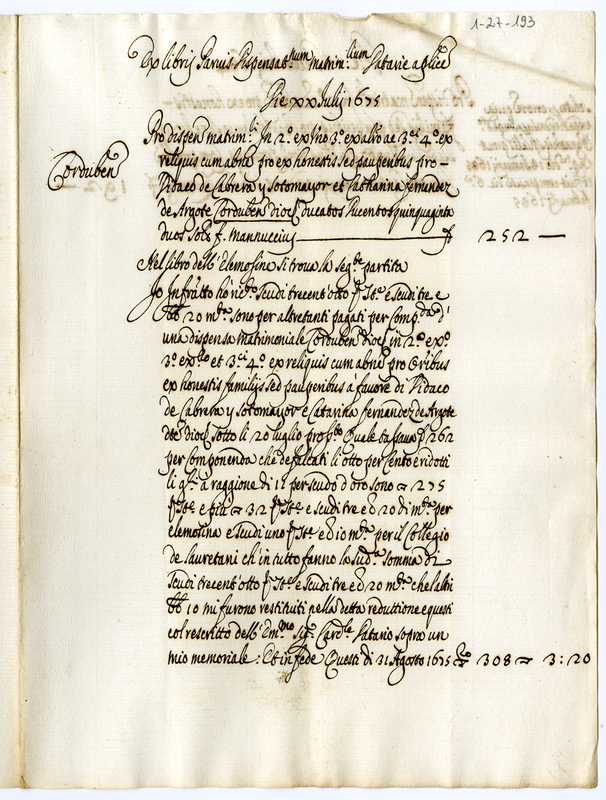 1-27-193
Ex libris Parvis Dispensat.num matrim.lium Datarie aplice
Die xx Julij 1675
Corduben
Pro dispen matrim.li In 2.o ex p.mo 3.o ex alio ac 3.o et 4.o ex
reliquis cum absne pro ex honestis sed pauperibus pro
Didaco de Cabrera y Sotomayor et Catharina fernandez
de Argote Corduben dioc ducatos Ducentos quinquaginta
duos sol F. Mannuccius 252
Nel libro dell'Elemosina si trova la seg.te partita
Io Infra.tto ho ric.to scudi trecent'otto e scudi tre e
20 m.ta sono per altretanti pagati per Comp.da d'
una dispensa matrimoniale Corduben dioc in 2.o ex p.o
3.o ex et 3.o et 4.o ex reliquis cum absne pro Oribus
ex honestis familijs sed pauperibus à favore di Didaco
de Cabrera y Sotomayor e Catarina fernandez de Argote
dte dioc sotto li 20 luglio Quale tassava 262
per Componenda che defalcati li otto per Cento e ridotti
li à raggione di 12 per scudo d'oro sono 275
e più 32 e scudi tre ed 20 di m.ta per
elemosina e scudi uno ed 10 m.ta per il Collegio
de lauretani ch'in tutto fanno la sud.a somma di
scudi trecent'otto e scudi tre ed 20 m.ta che l'altri
10 mi furono restituti nella detta reduttione e questi
col rescritto dell'Em.mo Sig. Card.le Datario sopra un
mio memoriale: Et in fede Questi di 31 Agosto 1675 308 3:20